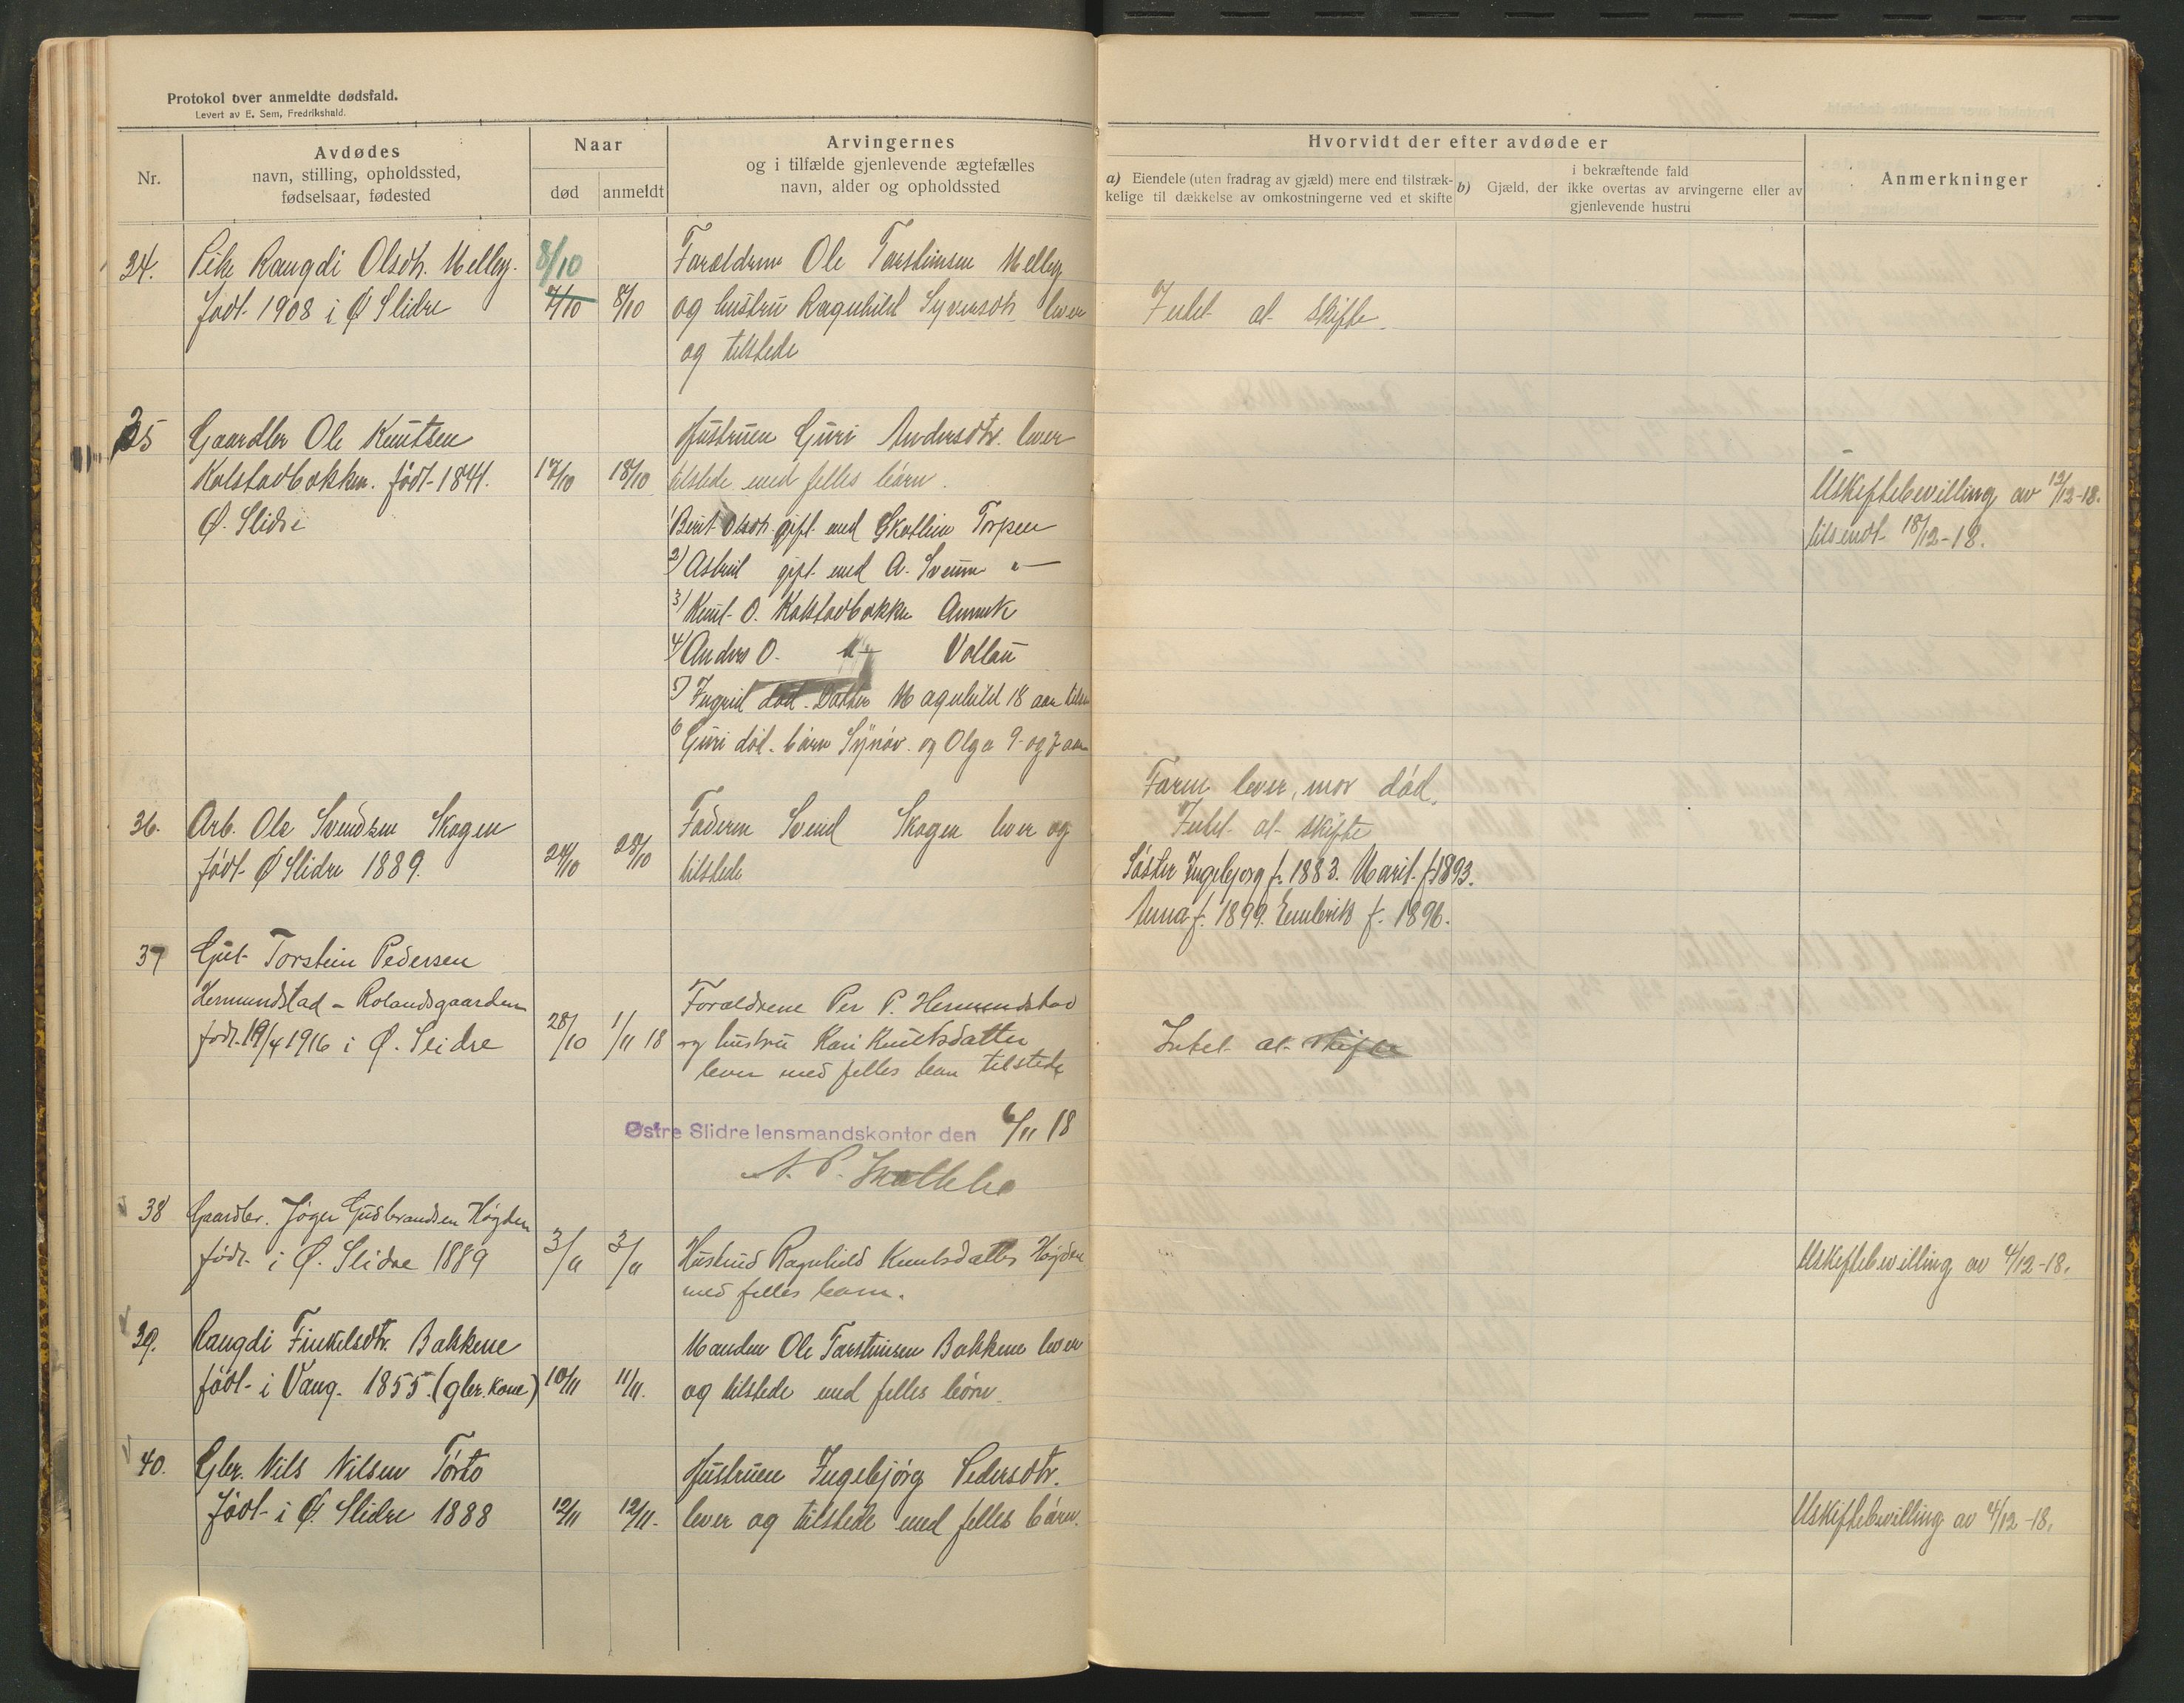 Protokol over anmeldte dødsfald.
Levert av E. Sem, Fredrikshald.
Nr.
Avdødes
navn, stilling, opholdssted,
fødselsaar, fødested
Naar
død
anmeldt
Arvingernes
og i tilfælde gjenlevende ægtefælles
navn, alder og opholdssted
Hvorvidt der efter avdøde er
a) Eiendele (uten fradrag av gjæld) mere end tilstræk-
kelige til dækkelse av omkostningerne ved et skifte
b) Gjæld, der
i bekræftende fald
ikke overtas av arvingerne eller av
gjenlevende hustru
Anmerkninger
34. Pike Rangdi Olsdh. Melby. 8/10 Foreldrene Ole Torsteinsen Melby
født 1908 i Ø Slidre 7/10 8/10 og hustru Ragnhild Syversdh lever Intet at skifte.
og tilstede
35 Gaardbr Ole Knutsen Hustruen Guri Andersdtr. lever
Kolstadbakken. født 1841. 17/10 18/10 tilstede med felles børn. Uskiftebevilling av 12/12-18.
Ø. Slidre 1 Berit Olsdh. gift med Torpen tilsendt 18/12-18.
2) Astrid gift med A. Sveum "—
3) Knut O. Kolstadbakken
4) Anders O. —"— Volbu
5) Ingrid død. Datter Magnhild 18 aar
6 Guri død. børn Synøv. og Olga 9 og 7 aar
Faren lever, mor død.
36. Arb. Ole Svendsen Skogen Faderen Svend Skogen lever og Intet at skifte
født Ø Slidre 1889. 24/10 28/10 tilstede Søster Ingebjorg f. 1883. Marit f. 1893.
Anna f. 1899. Embrik f. 1896.
37 Gut Torstein Pedersen
Hermundstad - Rolandsgaarden Forældrene Per P. Hermundstad
født 19/4 1916 i Ø. Slidre 28/10 1/11 18 og hustru Kari Knutsdatter Intet at skifte
lever med felles barn tilstede
Østre Slidre lensmandskontor den 6/11 18
38 Gaardbr. Jøger Gudbrandsen Høgden
født i Ø. Slidre 1889 3/11 3/11 Hustrud Ragnhild Knutsdatter Høgden Uskiftebevilling av 4/12-18.
med felles barn.
39. Rangdi Finkelsdtr. Bakkene Manden Ole Torsteinsen Bakkene lever
født i Vang. 1855. (gbr. kone) 10/11 11/11. og tilstede med felles børn.
40. Gbr. Nils Nilsen Tørto Hustruen Ingebjørg Pedersdtr.
født i Ø. Slidre 1888 12/11 12/11. lever og tilstede med felles børn. Uskiftebevilling av 4/12-18.